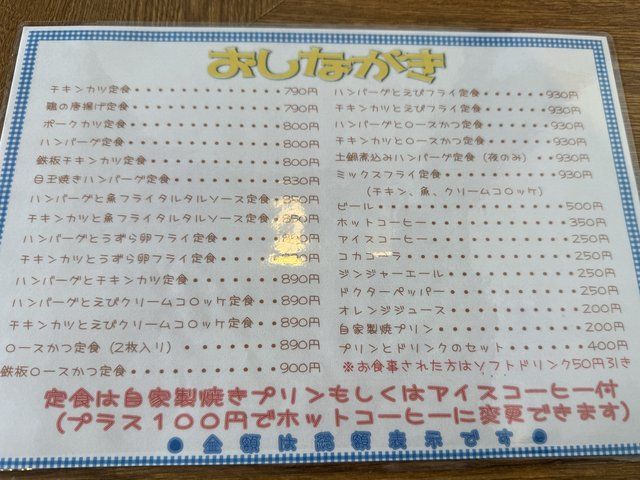 おしながき
チキンカツ定食・・・・・・・・・・・・・・・790円
鶏の唐揚げ定食・・・・・・・・・・・・・・790円
ポークカツ定食・・・・・・・・・・・・・・800円
ハンバーグ定食・・・・・・・・・・・・・・800円
鉄板チキンカツ定食・・・・・・・・・・・800円
目玉焼きハンバーグ定食・・・・・・・・・830円
ハンバーグと魚フライタルタルソース定食・850円
チキンカツと魚フライタルタルソース定食・
ハンバーグとうずら卵フライ定食・・・・・
チキンカツとうずら卵フライ定食・・・・・
ハンバーグとチキンカツ定食・・・・・・・890円
ハンバーグとえびクリームコロッケ定食・・890円
チキンカツとえびクリームコロッケ定食・・890円
ロースかつ定食(2枚入り)・・・・・・・・890円
鉄板ロースかつ定食・・・・・・・・・・・900円
ハンバーグとえびフライ定食・・・・・・・930円
チキンカツとえびフライ定食・・・・・・・930円
ハンバーグとロースかつ定食・・・・・・・930円
チキンカツとロースかつ定食・・・・・・・930円
土鍋煮込みハンバーグ定食(夜のみ)・・930円
ミックスフライ定食・・・・・・・・・・・930円
(チキン、魚、クリームコロッケ)
ビール・・・・・・・・・・・・・・・・・500円
ホットコーヒー・・・・・・・・・・・・・350円
アイスコーヒー・・・・・・・・・・・・・250円
コカコーラ・・・・・・・・・・・・・・・250円
ジンジャーエール・・・・・・・・・・・・250円
ドクターペッパー・・・・・・・・・・・・250円
オレンジジュース・・・・・・・・・・・・200円
自家製焼プリン・・・・・・・・・・・・・200円
プリンとドリンクのセット・・・・・・・・400円
※お食事された方はソフトドリンク50円引き
定食は自家製焼きプリンもしくはアイスコーヒー付
(プラス100円でホットコーヒーに変更できます)
●金額は総額表示です●